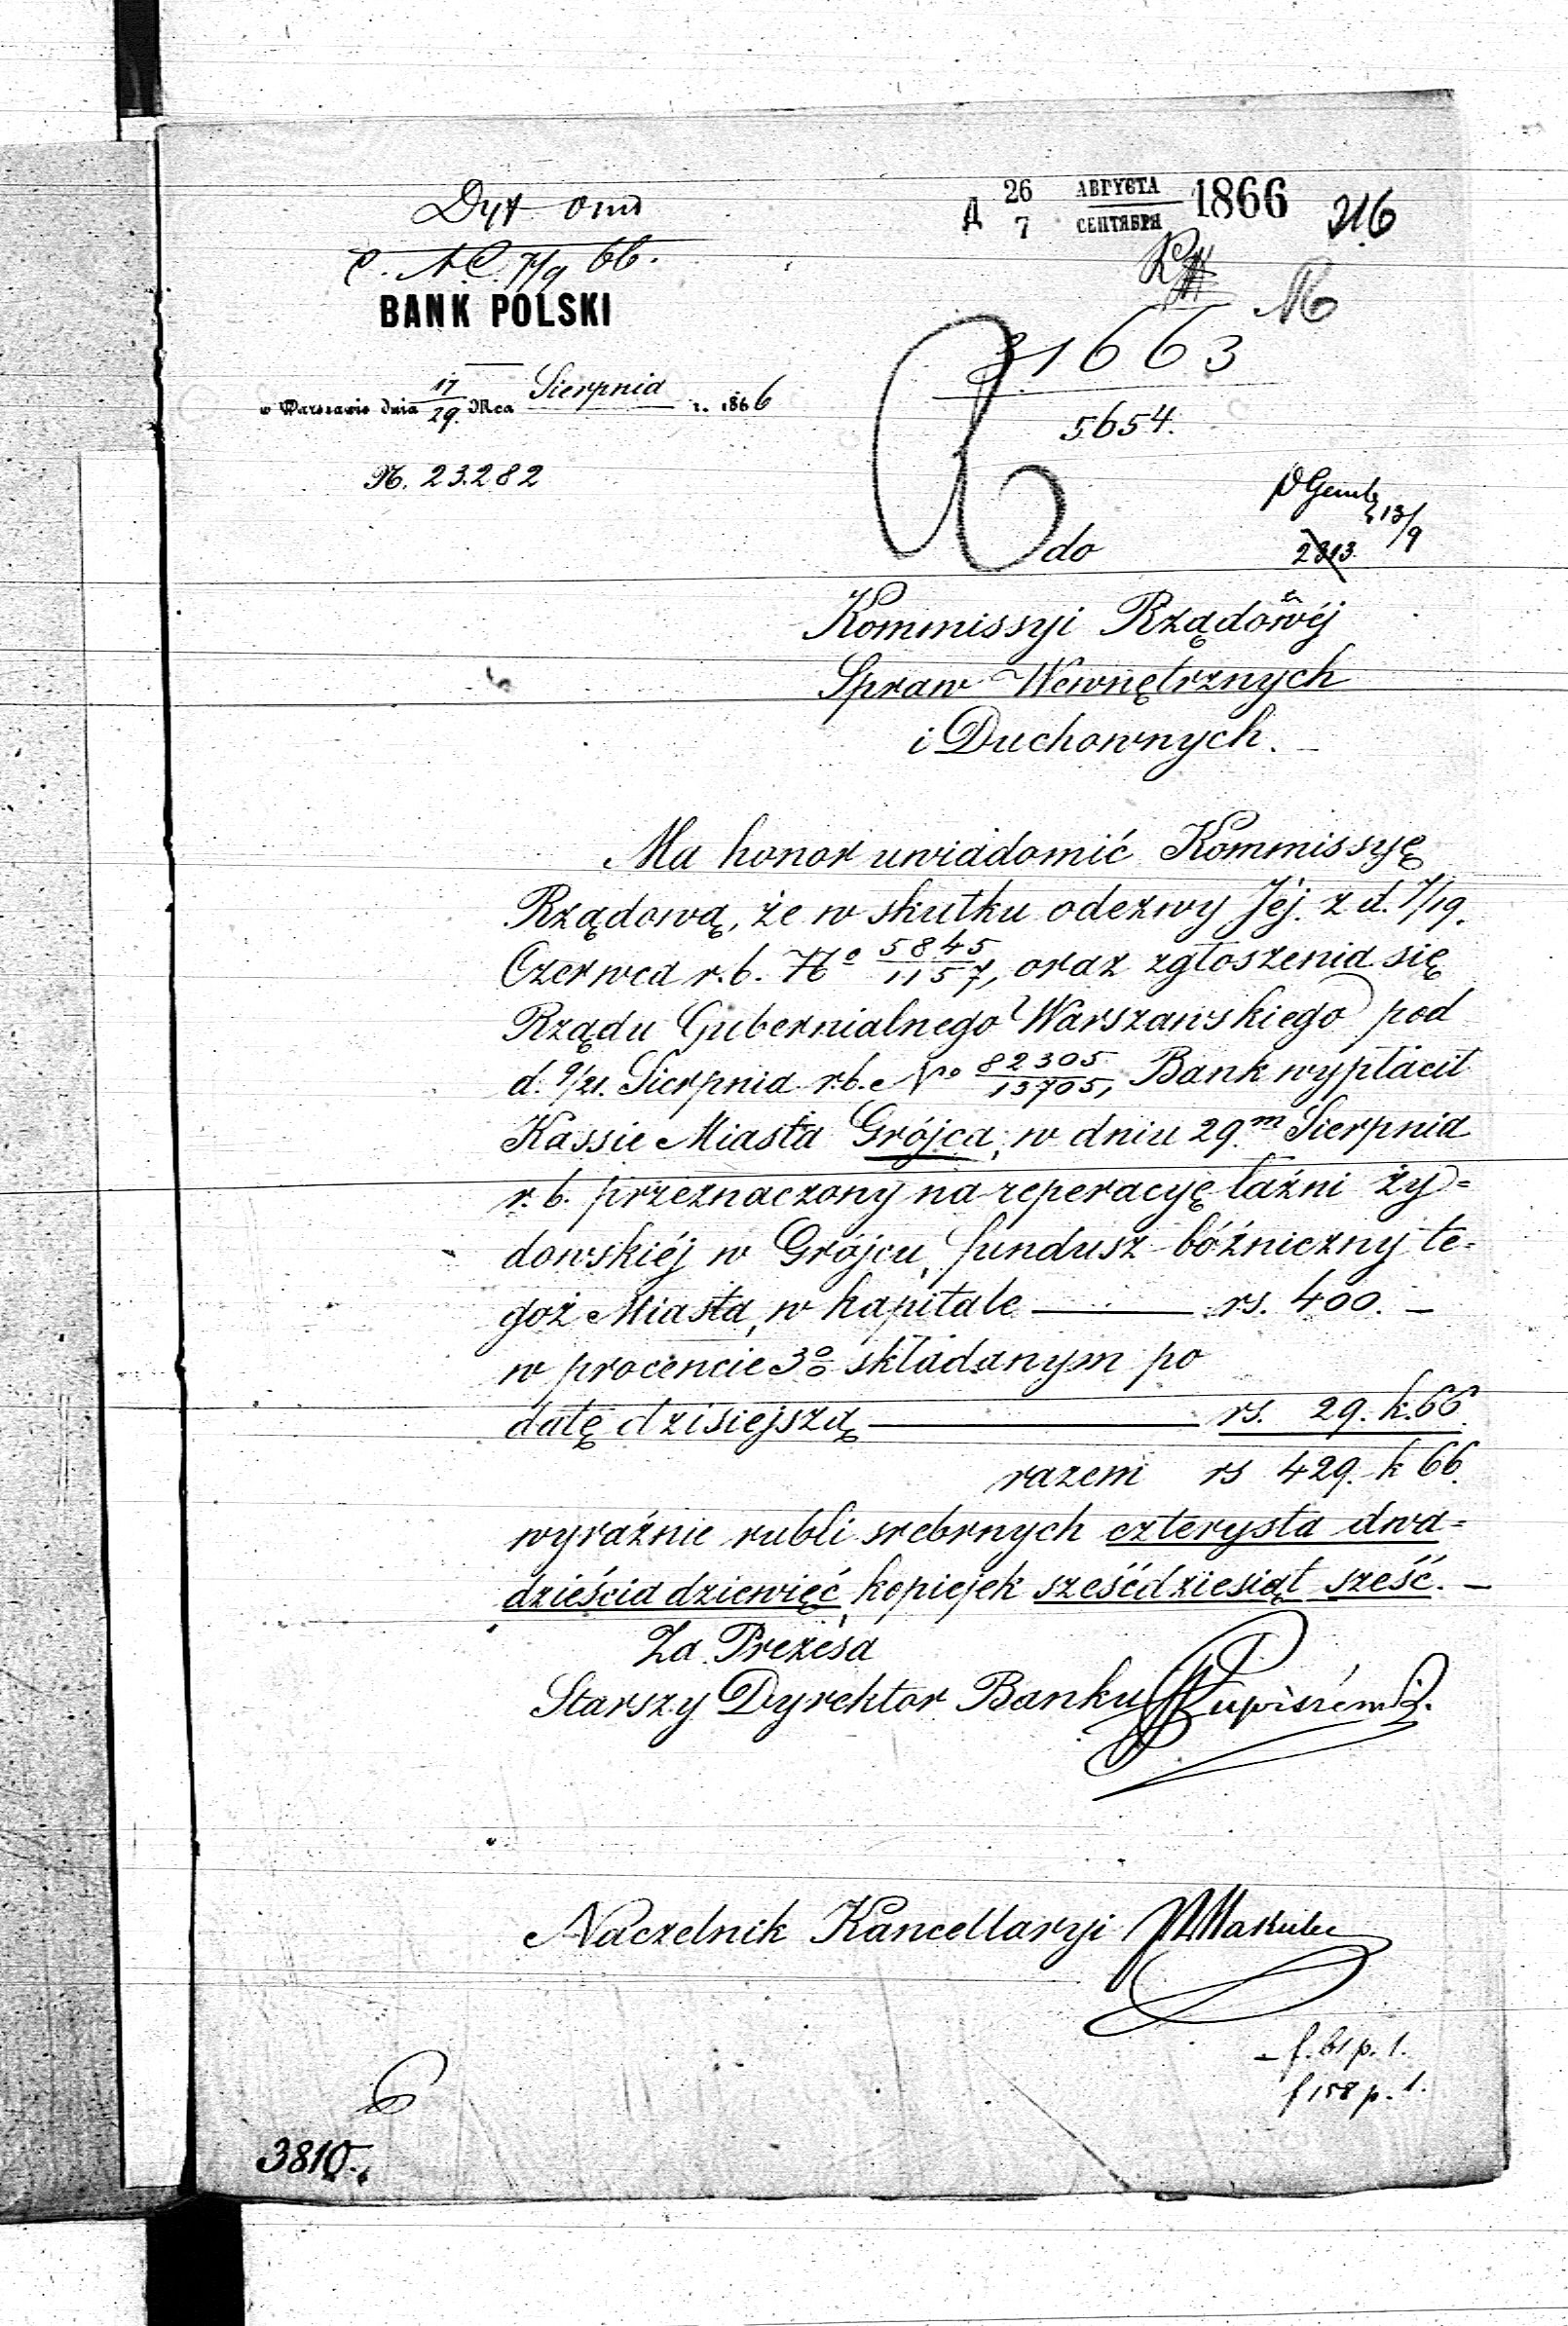 Д 26/7 АВГУСТА/СЕНТЯБРЯ 1866
216
BANK POLSKI
31663
5654.
w Warszawie dnia 17/29. Mca Sierpnia r. 1866
N. 23.282
13/9
2313
do
Kommissyi Rządowéj
Spraw Wewnętrznych
i Duchownych.
Ma honor uwiadomić Kommissyę
Rządową, że w skutku odezwy Jéj. z d. 7/19.
Czerwca r.b. No 5845/1157, oraz zgłoszenia się
Rządu Gubernialnego Warszawskiego pod
d. 9/21. Sierpnia r.b. No 82305/13705, Bank wypłacił
Kassie Miasta Grójca, w dniu 29.m Sierpnia
r.b. przeznaczony na reperacyę łaźni ży=
dowskiéj w Grójcu, fundusz bóźniczny te=
goż Miasta, w kapitale — rs. 400. —
w procencie 3% składanym po
datę dzisiejszą — rs. 29. k. 66.
razem rs 429. k 66.
wyraźnie rubli srebrnych czterysta dwa=
dzieścia dziewięć, kopiejek sześćdziesiąt sześć. —
Za Prezesa
Starszy Dyrektor Banku
Naczelnik Kancellaryi
f 158 p. 1.
3810.